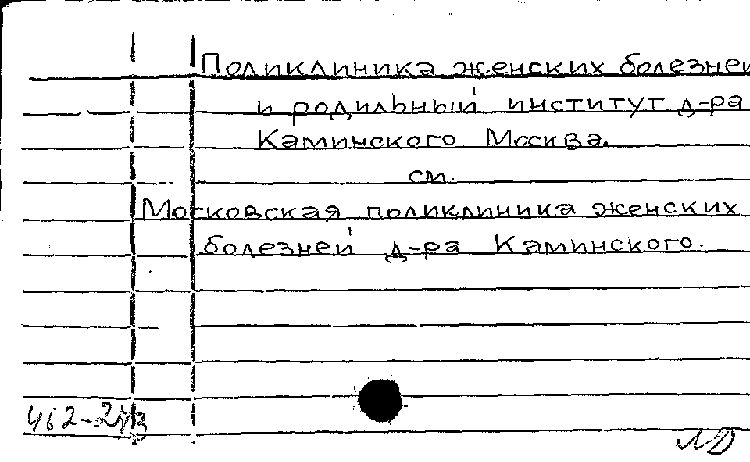 Поликлиника женских болезней
и родильный институт д-ра
Каминского Москва.
см.
Московская поликлиника женских
болезней д-ра Каминского.